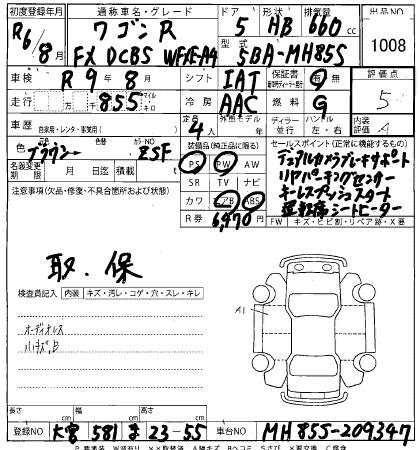 初度登録年月 通称車名・グレード ドア 形状 排気量 出品NO
R6/8月 ワゴンR 5 HB 660cc 1008
FX DCBS 型式 5BA-MH85S
車検 R9年8月 シフト IAT 保証書 有 無 評価点
走行 855 マイル キロ 冷房 AAC 燃料 G 5
車歴 自家用・レンタ・事業用( ) 定員 4人 外国モデル 年 ディーラー 並行 ハンドル 左・右 内装評価
色 ブラウン カラーNO ZSF 装備品(純正品に限る) セールスポイント(正常に機能するもの)
名義変更期限 月 日迄 積载 PS PW AW デュアルカメラブレーキサポート
注意事項(欠品・修復・不具合箇所および状態) SR TV ナビ リヤパーキングセンサー
カワ エアB ABS キーレスプッシュスタート
R券 6,470円 運転席シートヒーター
FW キズ・ヒビ割・リペア跡・X要
取・保
検査員記入 内装 キズ・汚レ・コゲ・穴・スレ・キレ
オーディオレス
A1
長さ cm 幅 cm 高さ cm
登録NO 大宮 581 ま 23-55 車台NO MH85S-209347